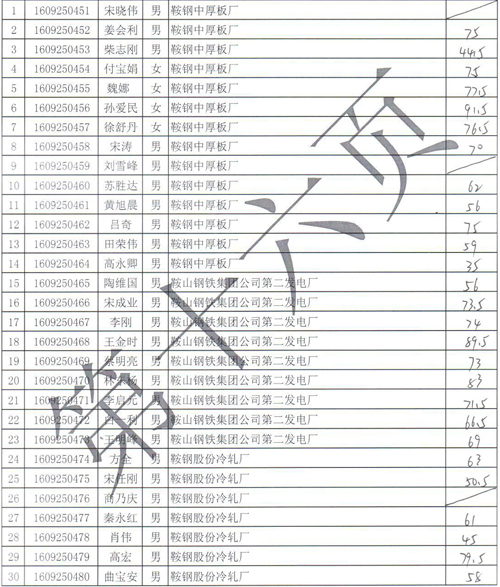 1 1609250451 宋晓伟 男 鞍钢中厚板厂
2 1609250452 姜会利 男 鞍钢中厚板厂 75
3 1609250453 柴志刚 男 鞍钢中厚板厂 44.5
4 1609250454 付宝娟 女 鞍钢中厚板厂 75
5 1609250455 魏娜 女 鞍钢中厚板厂 77.5
6 1609250456 孙爱民 女 鞍钢中厚板厂 91.5
7 1609250457 徐舒丹 女 鞍钢中厚板厂 76.5
8 1609250458 宋涛 男 鞍钢中厚板厂 70
9 1609250459 刘雪峰 男 鞍钢中厚板厂
10 1609250460 苏胜达 男 鞍钢中厚板厂 62
11 1609250461 黄旭晨 男 鞍钢中厚板厂 56
12 1609250462 吕奇 男 鞍钢中厚板厂 75
13 1609250463 田荣伟 男 鞍钢中厚板厂 59
14 1609250464 高永卿 男 鞍钢中厚板厂 35
15 1609250465 陶维国 男 鞍山钢铁集团公司第二发电厂 56
16 1609250466 宋成业 男 鞍山钢铁集团公司第二发电厂 73.5
17 1609250467 李刚 男 鞍山钢铁集团公司第二发电厂 74
18 1609250468 王金时 男 鞍山钢铁集团公司第二发电厂 89.5
19 1609250469 明亮 男 鞍山钢铁集团公司第二发电厂 73
20 1609250470 林 杨 男 鞍山钢铁集团公司第二发电厂 83
21 1609250471 李启元 男 鞍山钢铁集团公司第二发电厂 71.5
22 1609250472 白一利 男 鞍山钢铁集团公司第二发电厂 66.5
23 1609250473 王明峰 男 鞍山钢铁集团公司第二发电厂 69
24 1609250474 方全 男 鞍钢股份冷轧厂 63
25 1609250475 宋任刚 男 鞍钢股份冷轧厂 50.5
26 1609250476 商乃庆 男 鞍钢股份冷轧厂
27 1609250477 秦永红 男 鞍钢股份冷轧厂 61
28 1609250478 肖伟 男 鞍钢股份冷轧厂 45
29 1609250479 高宏 男 鞍钢股份冷轧厂 79.5
30 1609250480 曲宝安 男 鞍钢股份冷轧厂 58
第十六页